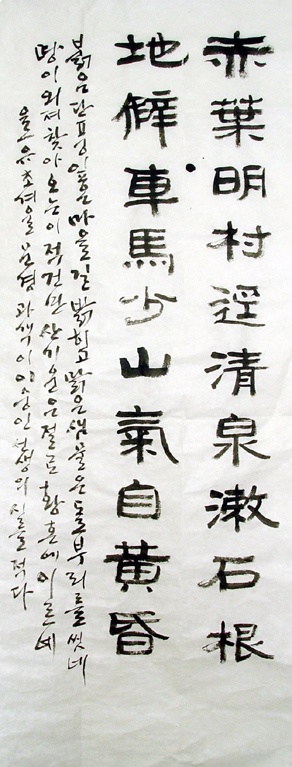 赤葉明村逕清泉漱石根
地僻車馬少山氣自黄昏
붉은 단풍잎은 마을길 밝히고 맑은 샘물은 돌부리를 씻네
땅이 외져 찾아오는 이 적건만 산기운은 절로 황혼에 이르네
을유 이숭인 선생의 시를 적다